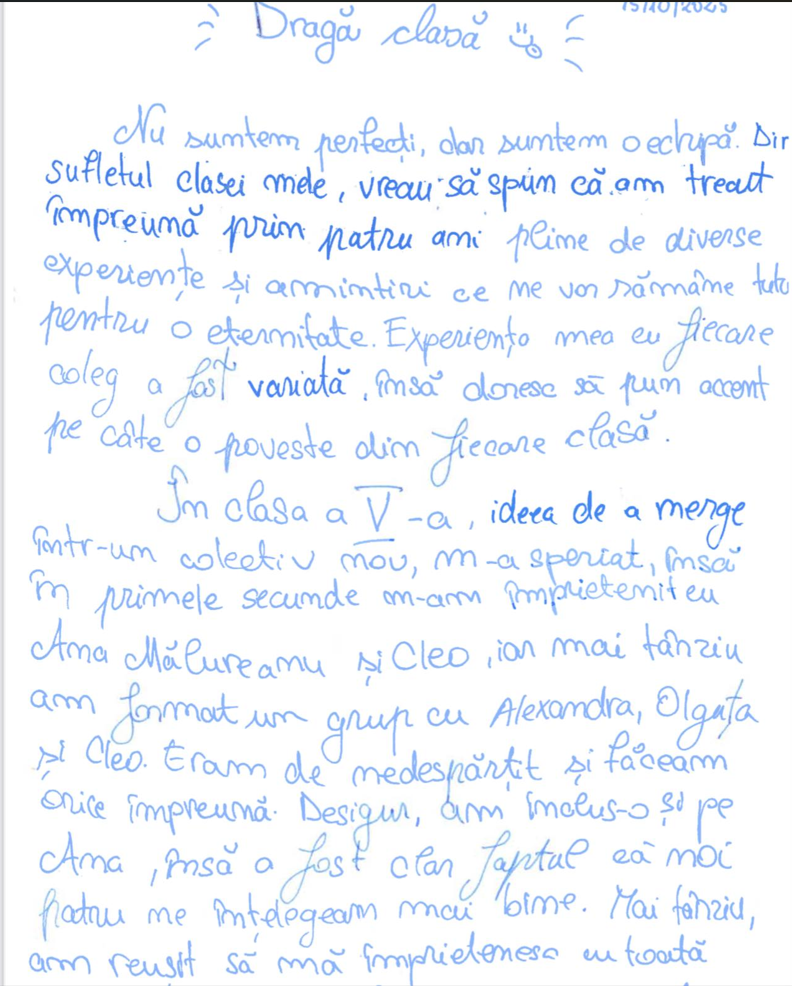 15/10/2025
Dragă clasă
Nu suntem perfecți, dar suntem o echipă. Din
sufletul clasei mele, vreau să spun că am trecut
împreună prin patru ani pline de diverse
experiențe și amintiri ce ne vor rămâne
pentru o eternitate. Experiența mea cu fiecare
coleg a fost variată, însă doresc să pun accent
pe câte o poveste din fiecare clasă.
În clasa a V-a, ideea de a merge
într-un colectiv nou, m-a speriat, însă
în primele secunde m-am împrietenit cu
Ana Mălureanu și Cleo, iar mai tânziu
am format un grup cu Alexandra, Olguța
și Cleo. Eram de nedespărțit și făceam
orice împreună. Desigur, am inclus-o și pe
Ana, însă a fost clar faptul că noi
patru ne înțelegeam mai bine. Mai tânziu,
am reusit să mă împrietenesc cu toată